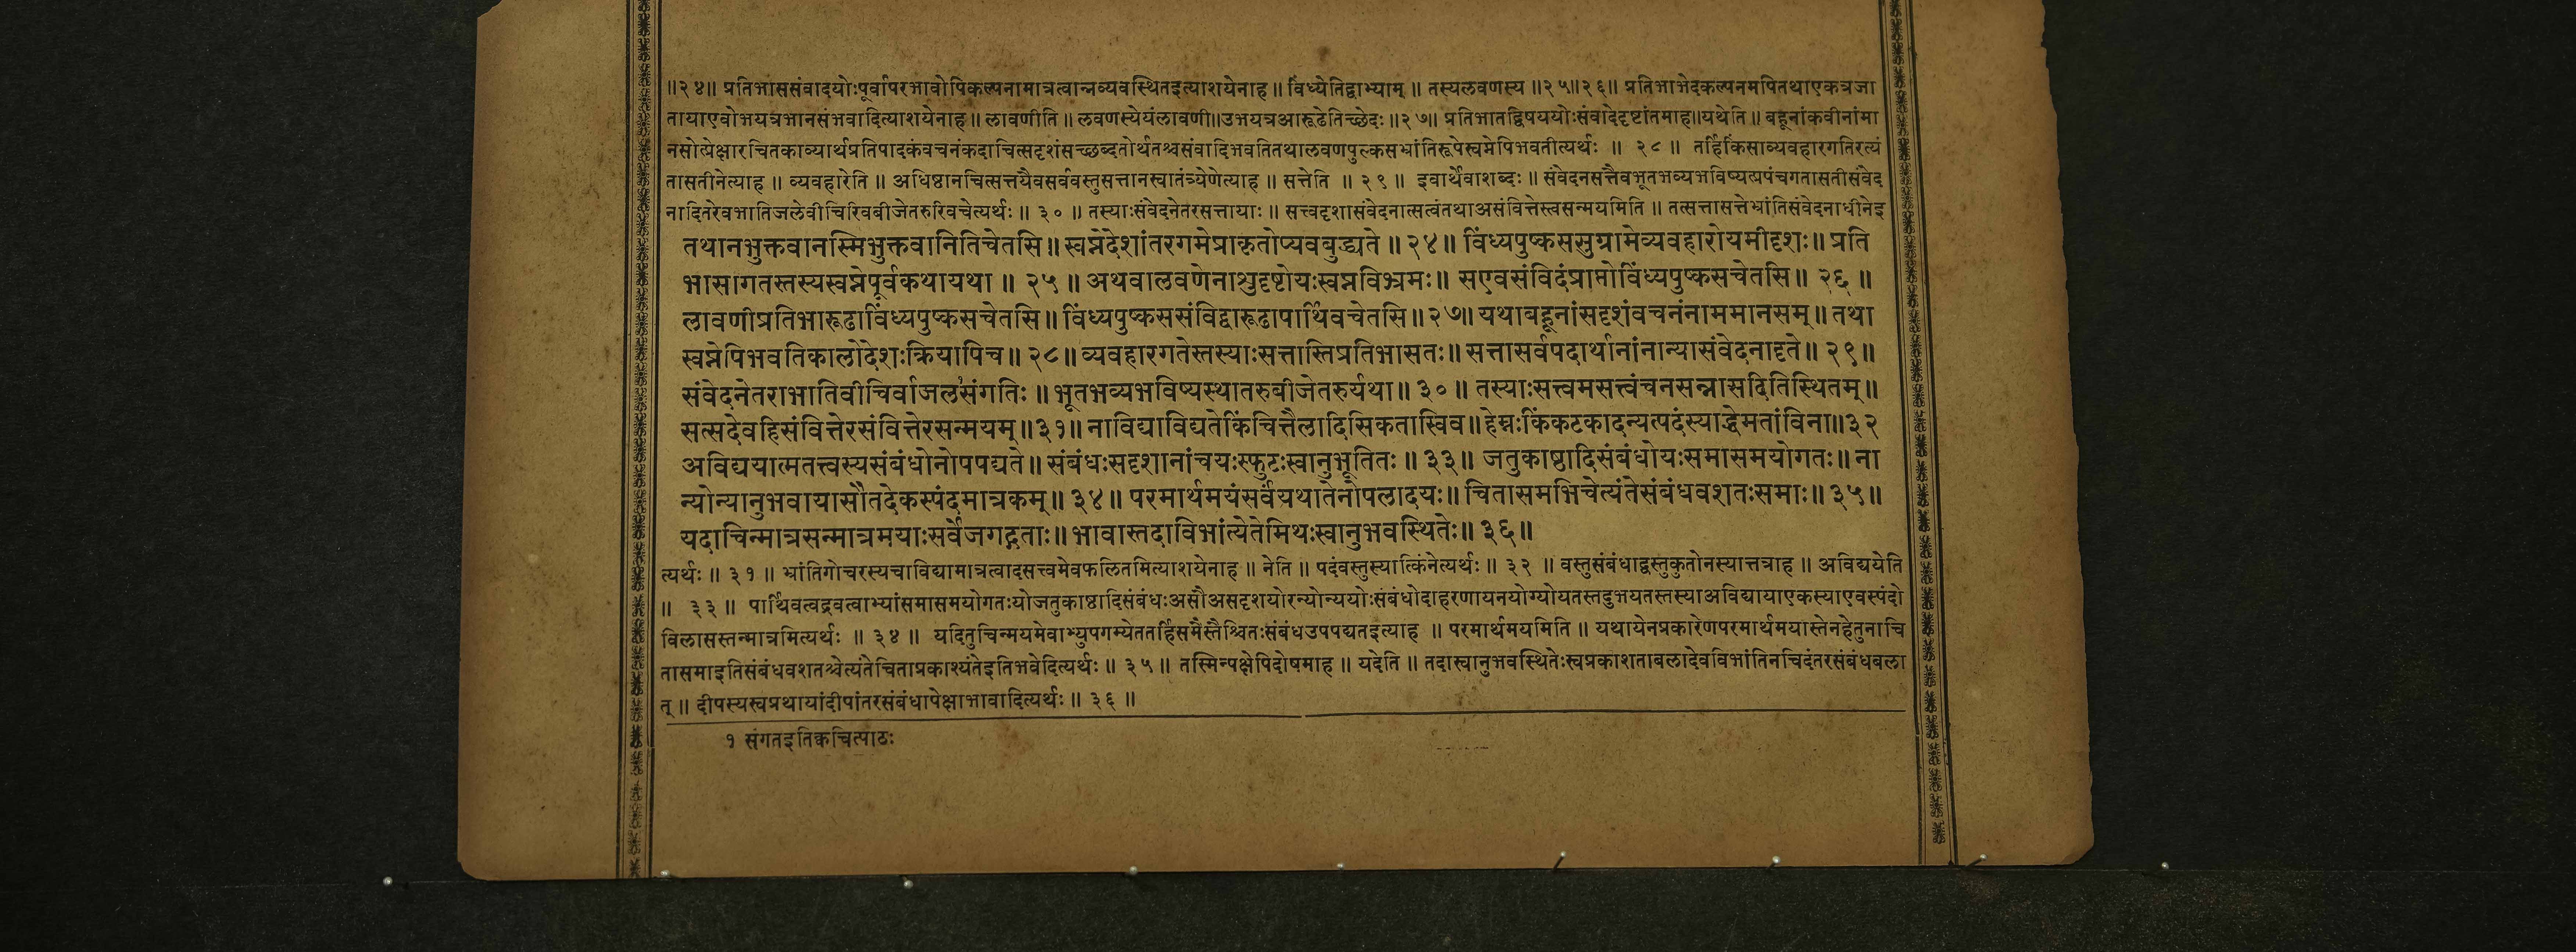 ॥२४॥ प्रतिभाससंवादयोःपूर्वापरभावोपिकल्पनामात्रत्वान्नव्यवस्थितइत्याशयेनाह ॥ विंध्येतिद्वाभ्याम् ॥ तस्यलवणस्य ॥२५॥२६॥ प्रतिभाभेदकल्पनमपितथाएकत्रजा
तायाएवोभयत्रभानसंभवादित्याशयेनाह ॥ लावणीति ॥ लवणस्येयंलावणी॥उभयत्रआरूढेतिच्छेदः ॥२७॥ प्रतिभातद्विषययोःसंवादेदृष्टांतमाह॥यथेति ॥ बहूनांकवीनांमा
नसोत्प्रेक्षारचितकाव्यार्थप्रतिपादकंवचनंकदाचित्सदृशंसच्छब्दतोर्थतश्चसंवादिभवतितथालवणपुल्कसभ्रांतिरूपेस्वप्नेपिभवतीत्यर्थः ॥ २८ ॥ तर्हिकिंसाव्यवहारगतिरत्यं
तासतीनेत्याह ॥ व्यवहारेति ॥ अधिष्ठानचित्सत्तयैवसर्ववस्तुसत्तानस्वातंत्र्येणेत्याह ॥ सत्तेति ॥ २९ ॥ इवार्थेवाशब्दः ॥ संवेदनसत्तैवभूतभव्यभविष्यत्प्रपंचगतासतीसंवेद
नादितरेवभातिजलेवीचिरिवबीजेतरुरिवचेत्यर्थः ॥ ३० ॥ तस्याःसंवेदनेतरसत्तायाः ॥ सत्त्वदृशासंवेदनात्सत्वंतथाअसंवित्तेस्त्वसन्मयमिति ॥ तत्सत्तासत्तेभ्रांतिसंवेदनाधीनेइ
तथानभुक्तवानस्मिभुक्तवानितिचेतसि ॥ स्वप्नेदेशांतरगमेप्राकृतोप्यवबुद्ध्यते ॥ २४ ॥ विंध्यपुष्कससुग्रामेव्यवहारोयमीदृशः ॥ प्रति
भासागतस्तस्यस्वप्नेपूर्वकथायथा ॥ २५ ॥ अथवालवणेनाशुदृष्टोयःस्वप्नविभ्रमः ॥ सएवसंविदंप्राप्तोविंध्यपुष्कसचेतसि ॥ २६ ॥
लावणीप्रतिभारूढाविंध्यपुष्कसचेतसि ॥ विंध्यपुष्कससंविद्वारूढापार्थिवचेतसि ॥ २७॥ यथाबहूनांसदृशंवचनंनाममानसम् ॥ तथा
स्वप्नेपिभवतिकालोदेशःक्रियापिच ॥ २८ ॥ व्यवहारगतेस्तस्याःसत्तास्तिप्रतिभासतः ॥ सत्तासर्वपदार्थानांनान्यासंवेदनादृते ॥ २९ ॥
संवेदनेतराभातिवीचिर्वाजल१संगतिः ॥ भूतभव्यभविष्यस्थातरुबीजेतरुर्यथा ॥ ३० ॥ तस्याःसत्त्वमसत्त्वंचनसन्नासदितिस्थितम् ॥
सत्सदेवहिसंवित्तेरसंवित्तेरसन्मयम् ॥३१॥ नाविद्याविद्यतेकिंचित्तैलादिसिकतास्विव ॥ हेम्नःकिंकटकादन्यत्पदंस्याद्धेमतांविना॥३२
अविद्ययात्मतत्त्वस्यसंबंधोनोपपद्यते ॥ संबंधःसदृशानांचयःस्फुटःस्वानुभूतितः ॥ ३३ ॥ जतुकाष्ठादिसंबंधोयःसमासमयोगतः ॥ ना
न्योन्यानुभवायासौतदेकस्पंदमात्रकम् ॥ ३४ ॥ परमार्थमयंसर्वंयथातेनोपलादयः ॥ चितासमभिचेत्यंतेसंबंधवशतःसमाः ॥ ३५ ॥
यदाचिन्मात्रसन्मात्रमयाःसर्वेजगद्गताः ॥ भावास्तदाविभांत्येतेमिथःस्वानुभवस्थितेः ॥ ३६ ॥
त्यर्थः ॥ ३१ ॥ भ्रांतिगोचरस्यचाविद्यामात्रत्वादसत्त्वमेवफलितमित्याशयेनाह ॥ नेति ॥ पदंवस्तुस्यात्किंनेत्यर्थः ॥ ३२ ॥ वस्तुसंबंधाद्वस्तुकुतोनस्यात्तत्राह ॥ अविद्ययेति
॥ ३३ ॥ पार्थिवत्वद्रवत्वाभ्यांसमासमयोगतःयोजतुकाष्ठादिसंबंधःअसौअसदृशयोरन्योन्ययोःसंबंधोदाहरणायनयोग्योयतस्तदुभयतस्तस्याअविद्यायाएकस्याएवस्पंदो
विलासस्तन्मात्रमित्यर्थः ॥ ३४ ॥ यदितुचिन्मयमेवाभ्युपगम्येततर्हिसमैस्तैश्चितःसंबंधउपपद्यतइत्याह ॥ परमार्थमयमिति ॥ यथायेनप्रकारेणपरमार्थमयास्तेनहेतुनाचि
तासमाइतिसंबंधवशतश्चेत्यंतेचिताप्रकाश्यंतेइतिभवेदित्यर्थः ॥ ३५ ॥ तस्मिन्पक्षेपिदोषमाह ॥ यदेति ॥ तदास्वानुभवस्थितेःस्वप्रकाशताबलादेवविभांतिनचिदंतरसंबंधबला
त् ॥ दीपस्यस्वप्रथायांदीपांतरसंबंधापेक्षाभावादित्यर्थः ॥ ३६ ॥
१ संगतइतिक्वचित्पाठः